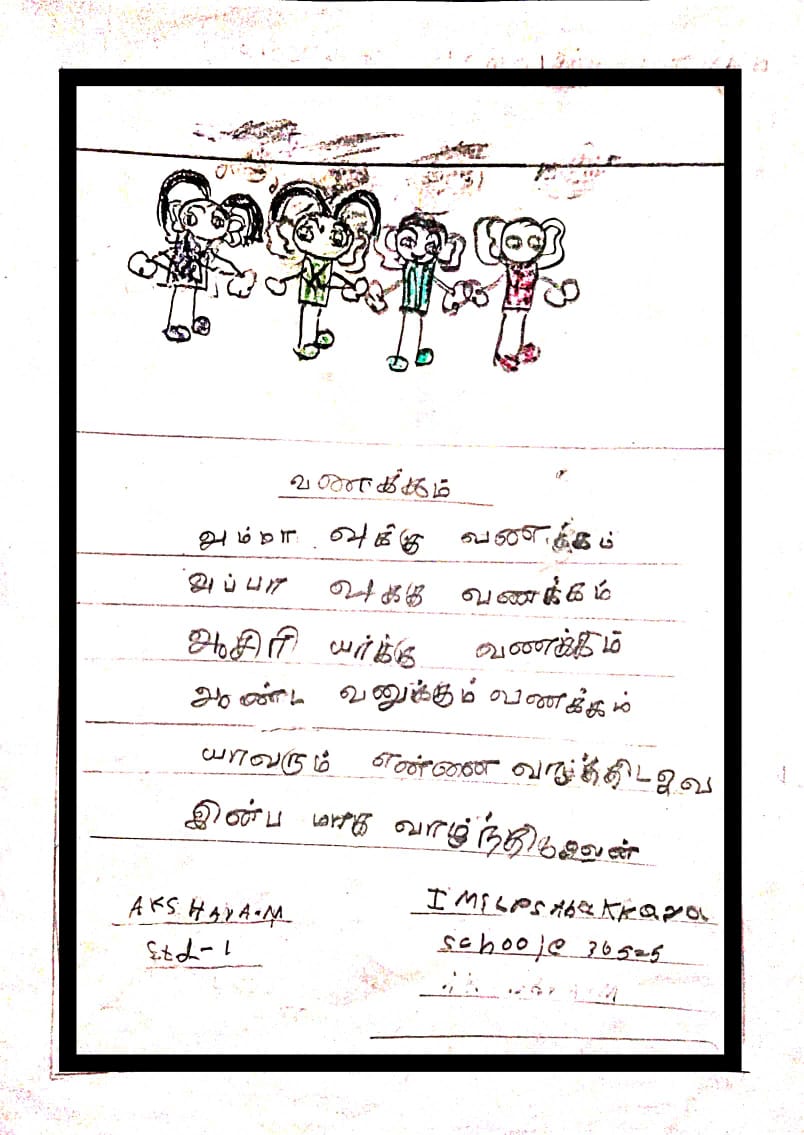 வணக்கம்
அம்மா வுக்கு வணக்கம்
அப்பா வுக்கு வணக்கம்
ஆசிரி யர்க்கு வணக்கம்
ஆண்ட வனுக்கும் வணக்கம்
யாவரும் என்னை வாழ்த்திடவே
இன்ப மாக வாழ்ந்திடுவேன்
AKSHAYA.M
Std-1
school